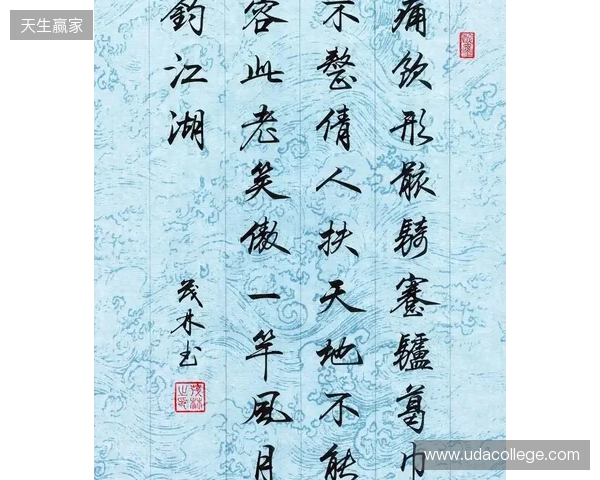 天生赢家
痛飲形骸騎蹇驢葛巾
不整倩人扶天地不能
容此老笑傲一竿風月
釣江湖
茂林书
www.udacollege.com